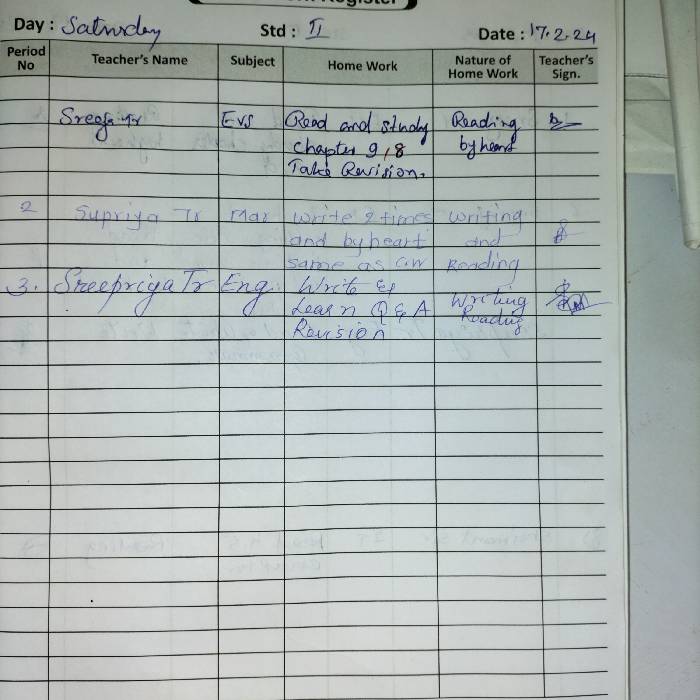 Register
Day : Saturday Std : II Date : 17.2.24
Period No Teacher's Name Subject Home Work Nature of Home Work Teacher's Sign.
Tr EVS Read and study Reading
chapter 9,8 by heart
Take Revision.
2 Supriya Tr Write 2 times Writing
and by heart and
same as C.W Reading
3. Sreepriya Tr Eng Write &
Learn Q & A Writing
Revision Reading